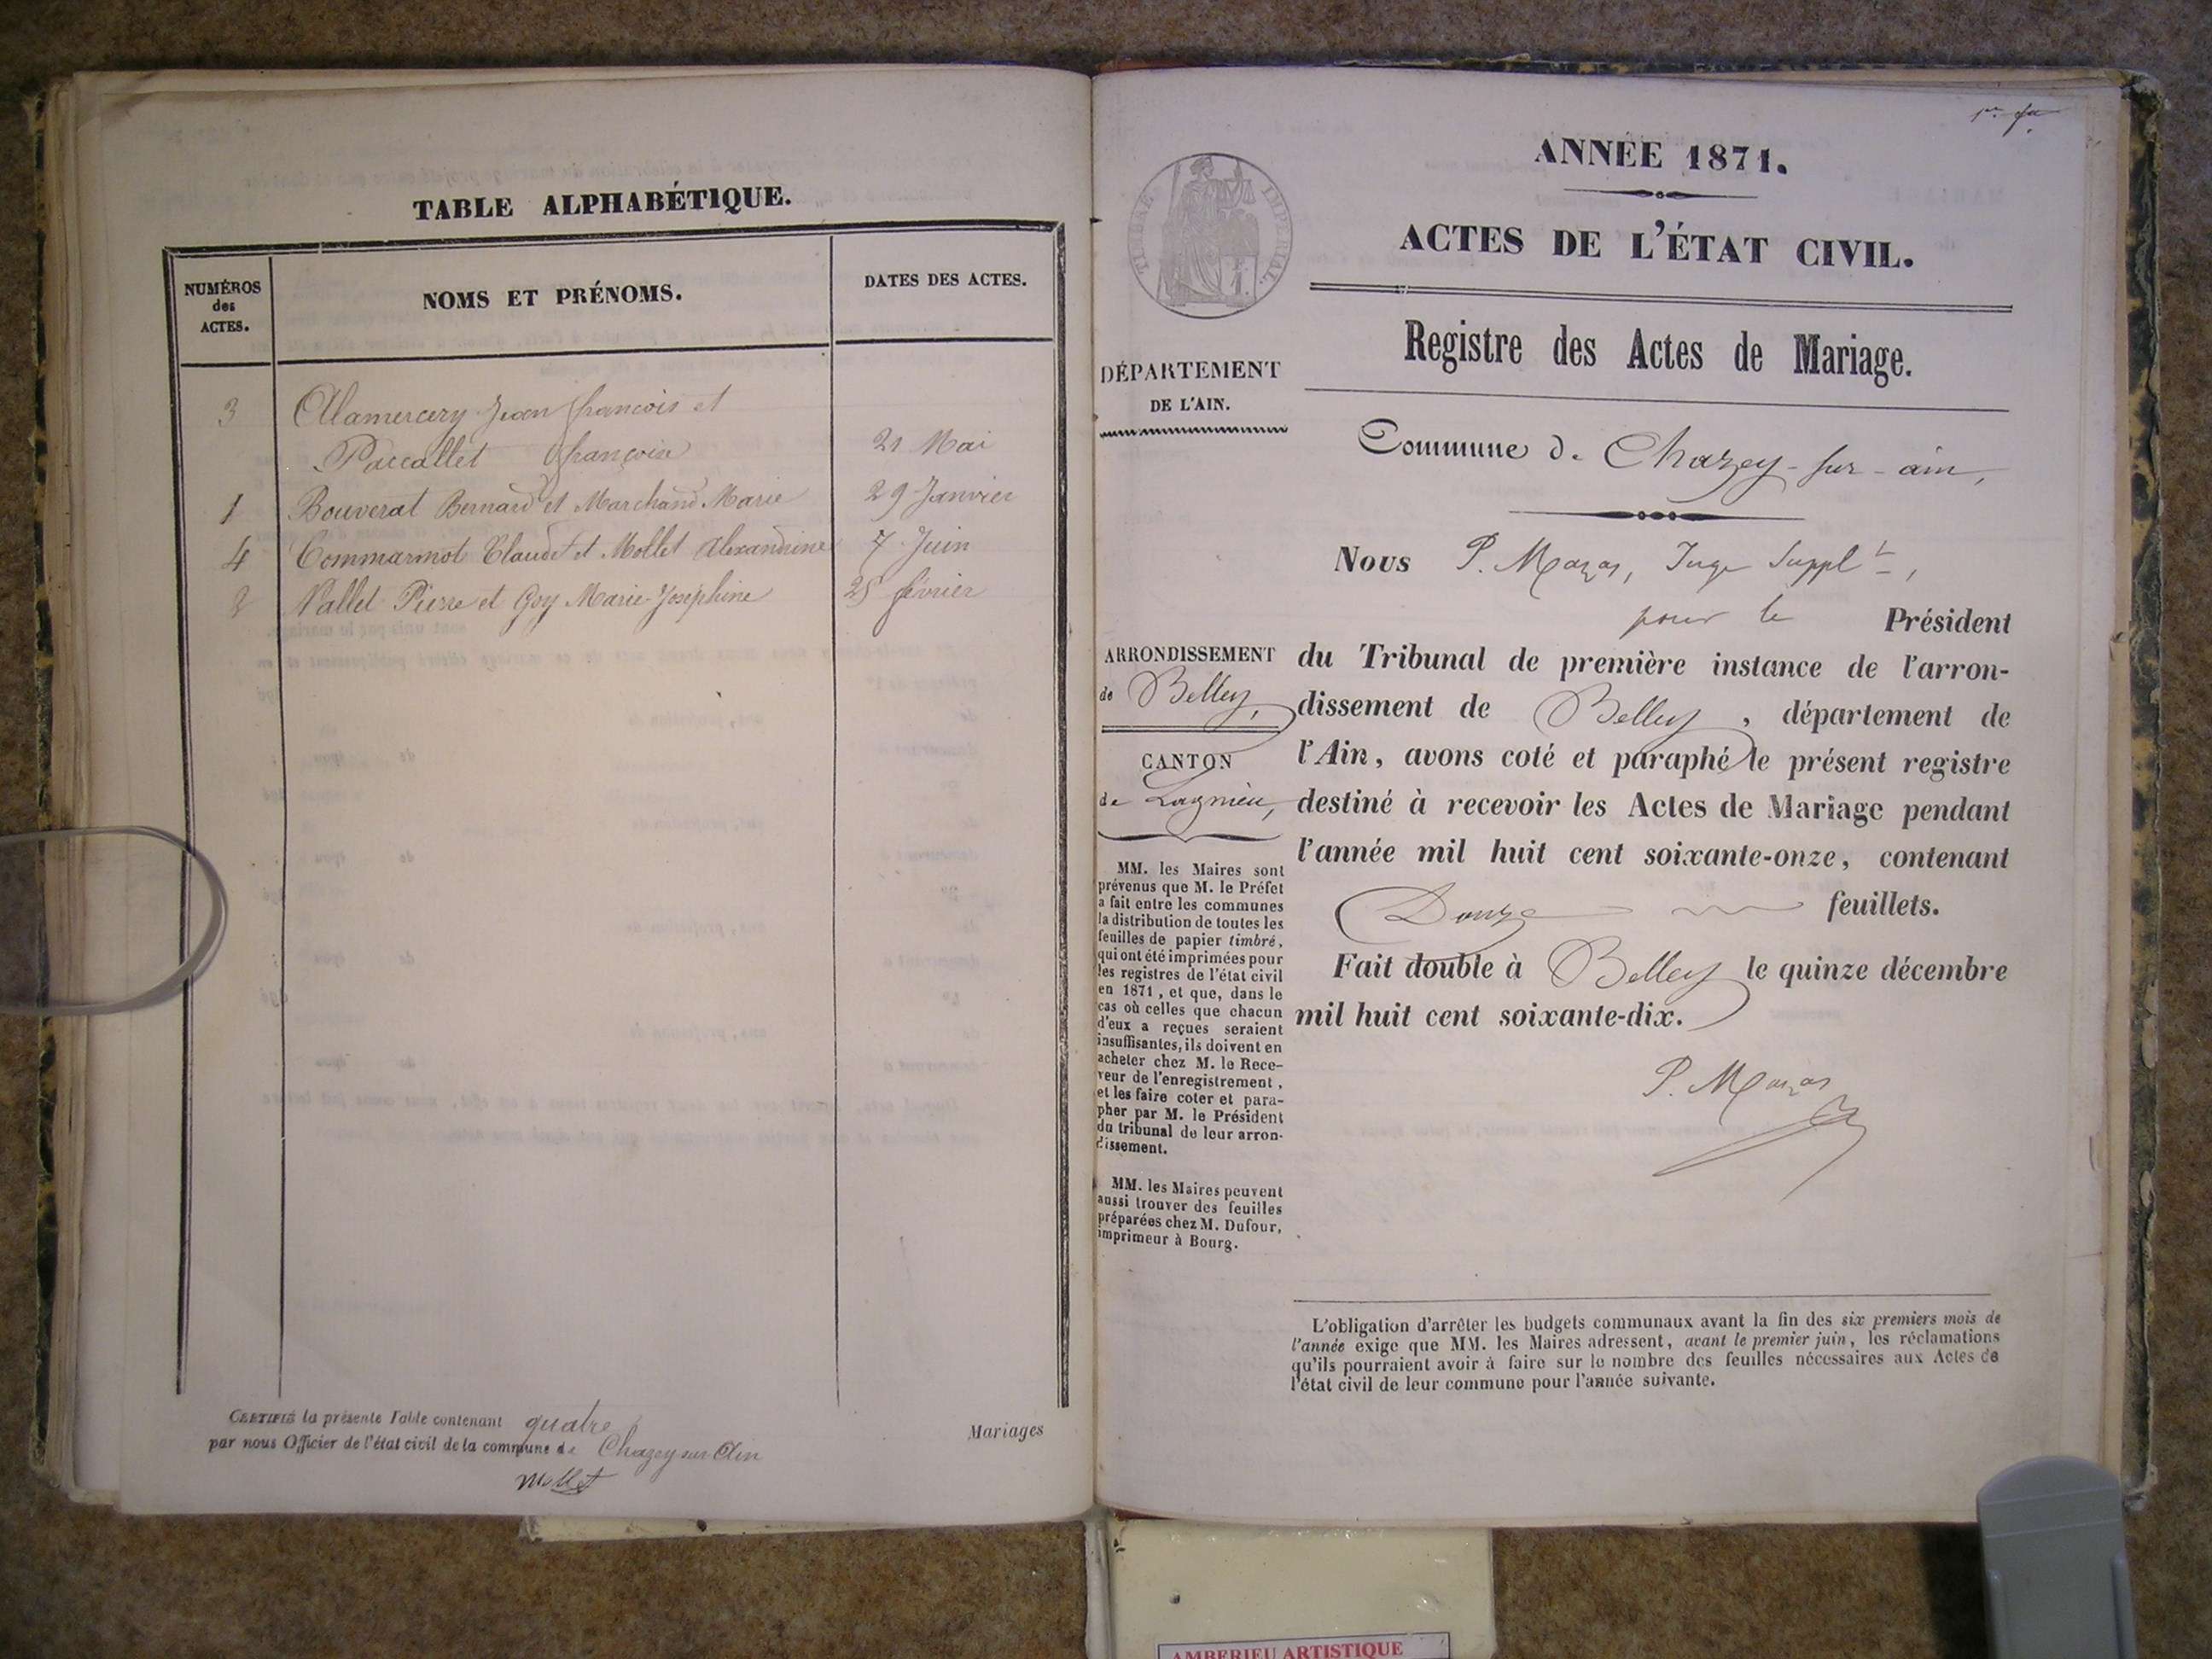 TABLE ALPHABÉTIQUE.
NUMÉROS
des
ACTES.
NOMS ET PRÉNOMS.
DATES DES ACTES.
3 Alamercery Jean françois et
Paccallet françoise 21 Mai
1 Bouverat Bernard et Marchand Marie 29 Janvier
4 Commarmot Claude et Mollet Alexandrine 7 Juin
2 Vallet Pierre et Goy Marie-Joséphine 25 février
CERTIFIÉ la présente Table contenant quatre
par nous Officier de l'état civil de la commune de Chazey sur Ain
Mollet
Mariages
1er fet
ANNÉE 1871.
ACTES DE L'ÉTAT CIVIL.
TIMBRE IMPÉRIAL
Registre des Actes de Mariage.
DÉPARTEMENT
DE L'AIN.
Commune de Chazey-sur-ain,
Nous P. Mazas, Juge Supplt,
pour le Président
ARRONDISSEMENT
de Belley,
CANTON
de Lagnieu,
du Tribunal de première instance de l'arron-
dissement de Belley, département de
l'Ain, avons coté et paraphé le présent registre
destiné à recevoir les Actes de Mariage pendant
l'année mil huit cent soixante-onze, contenant
Douze feuillets.
Fait double à Belley le quinze décembre
mil huit cent soixante-dix.
P. Mazas
MM. les Maires sont
prévenus que M. le Préfet
a fait entre les communes
la distribution de toutes les
feuilles de papier timbré,
qui ont été imprimées pour
les registres de l'état civil
en 1871, et que, dans le
cas où celles que chacun
d'eux a reçues seraient
insuffisantes, ils doivent en
acheter chez M. le Rece-
veur de l'enregistrement,
et les faire coter et para-
pher par M. le Président
du tribunal de leur arron-
dissement.
MM. les Maires peuvent
aussi trouver des feuilles
préparées chez M. Dufour,
imprimeur à Bourg.
L'obligation d'arrêter les budgets communaux avant la fin des six premiers mois de
l'année exige que MM. les Maires adressent, avant le premier juin, les réclamations
qu'ils pourraient avoir à faire sur le nombre des feuilles nécessaires aux Actes de
l'état civil de leur commune pour l'année suivante.
AMBERIEU ARTISTIQUE